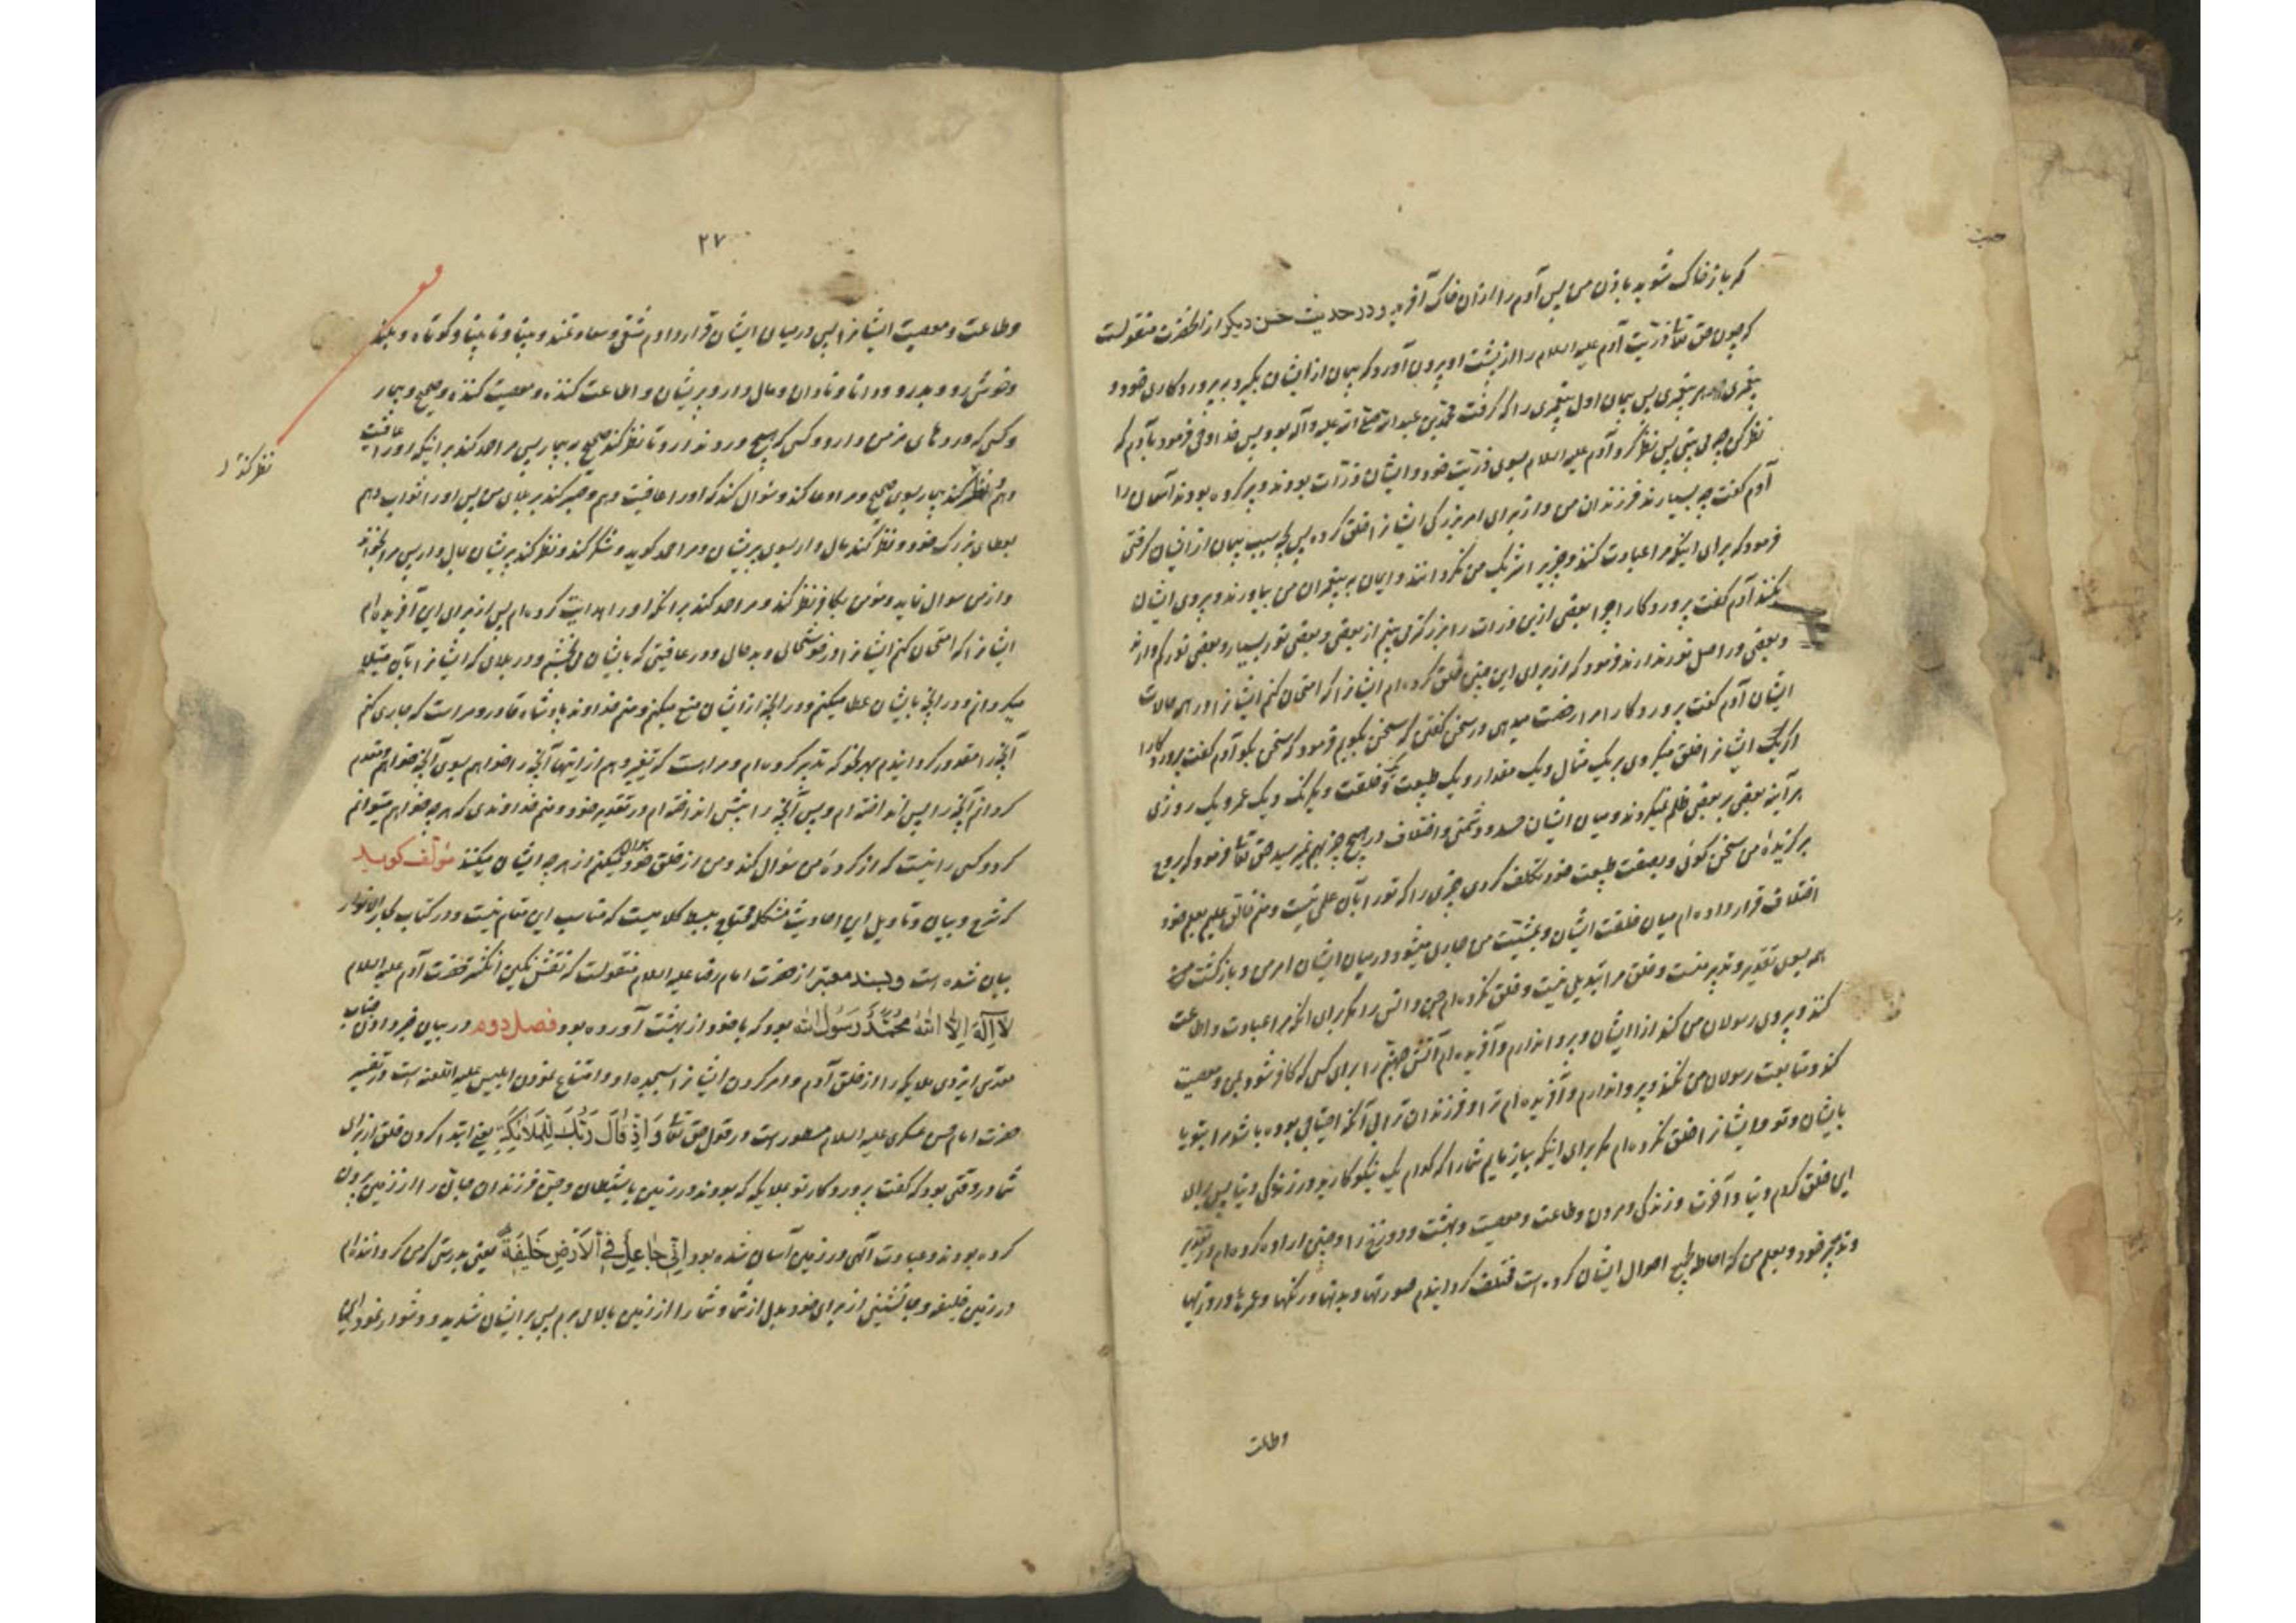 که باز خاک شوید باذن من پس آدم را از ان خاک آفرید و در حدیث حسن دیگر از انحضرت منقولست
که چون حق تعا ذرّیت آدم علیه السلام را از پشت او بیرون آورد که پیمان از ایشان بگیرد به پروردکاری خود و
پیغمبری هر پیغمبری پس پیمان اول پیغمبری را که گرفت محمّد بن عبد الله صلی الله علیه و آله بود پس خدا وحی فرمود بآدم که
نظر کن چه می بینی پس نظر کرد آدم علیه السلام بسوی ذرّیت خود و ایشان ذرّات بودند و پر کرده بودند آسمان را
آدم گفت چه بسیارند فرزندان من و از برای امر بزرکی ایشانرا خلق کرده پس بچه سبب پیمان از ایشان گرفتی
فرمود که برای اینکه مرا عبادت کنند و چیزی را شریک من نکردانند و ایمان به پیغمبران من بیاورند و پیروی ایشان
بکنند آدم گفت پروردکارا چرا بعضی ازین ذرات را بزرکتر می بینم از بعضی و بعضی نور بسیار و بعضی نور کم دارند
و بعضی در اصل نور ندارند فرمود که از برای این چنین خلق کرده ام ایشانرا که امتحان کنم ایشانرا در همه حالات
ایشان آدم گفت پروردکارا مرا رخصت میدهی در سخن گفتن که سخن بگویم فرمود که سخن بکو آدم گفت پروردکارا
اکر ایشانرا خلق میکردی بر یک مثال و یک مقدار و یک طبیعت و یک خلقت و یکرنک و یک عمر و یک روزی
هر آینه بعضی بر بعضی ظلم نمیکردند و میان ایشان حسد و دشمنی و اختلاف در هیچ چیز بهم نمیرسید حق تعا فرمود که بروح
برکزیدهٔ من سخن گوئی و بضعف طبیعت خود تکلف کردی چیزی را که تو را بآن علمی نیست و منم خالق علیم بعلم خود
اختلاف قرار داده ام میان خلقت ایشان و بمشیّت من جاری میشود در میان ایشان امر من و بازکشت
همه بسوی تقدیر و تدبیر منست و خلق مرا تبدیل نیست و خلق نکرده ام جن و انس را مکر برای انکه مرا عبادت و اطاعت
کنند و پیروی رسولان من کند از ایشان و پروا ندارم و آفریده ام آتش جهنّم را برای کسی که کافر شود بمن و معصیت
کند و متابعت رسولان من نکند و پروا ندارم و آفریده ام ترا و فرزندان ترا بی آنکه احتیاجی بوده باشد مرا بتو یا
بایشان و تو و ایشانرا خلق نکرده ام مکر برای اینکه بیازمایم شما را که کدام یک نیکوکارترید در زندکی دنیا پس برای
این خلق کردم دنیا و آخرت و زندکی و مردن و طاعت و معصیت و بهشت و دوزخ را و چنین اراده کرده ام در تقدیر
و تدبیر خود و بعلم من که احاطه بجمیع احوال ایشان کرده است مختلف کردانیدم صورتها و بدنها و رنکها و عمرها و روزیها
وطاعت
۲۷
وطاعت و معصیت ایشانرا پس در میان ایشان قرار دادم شقی و سعادتمند و بینا و نابینا و کوتاه و بلند
و خوش رو و بدرو و دانا و نادان و مال دار و پریشان و اطاعت کننده و معصیت کننده و صحیح و بیمار
و کسی که دردهای مزمن دارد و کسی که هیچ درد ندارد تا نظر کند صحیح به بیمار پس مرا حمد کند بر اینکه او را عافیت
دهم و نظر کند بیمار بسوی صحیح و مرا دعا کند و سؤال کند که او را عافیت دهم و صبر کند بر بلای من پس او را ثواب دهم
نظر کند
بعطای بزرک خود و نظر کند مال دار بسوی پریشان و مرا حمد کوید و شکر کند و نظر کند پریشان بمال دار پس مرا بخواند
و از من سوال نماید و مؤمن بکافر نظر کند و مرا حمد کند برانکه او را هدایت کرده ام پس از برای این آفریده ام
ایشانرا که امتحان کنم ایشانرا در خوشحالی و بدحالی و در عافیتی که بایشان می بخشم و در بلائی که ایشانرا بآن مبتلا
میکردانم و در انچه بایشان عطا میکنم و در انچه از ایشان منع میکنم و منم خداوند پادشاه قادر و مراست که جاری کنم
آنچه را مقدور کردانیدم بهر نحو که تدبیر کرده ام و مراست که تغییر دهم از اینها آنچه را خواهم بسوی آنچه خواهم و مقدم
کردانم آنچه را پس انداخته ام و پس آنچه را پیش انداخته ام در تقدیر خود و منم خداوندی که هر چه خواهم میتوانم
کرد و کسی را نیست که از کردهٔ من سؤال کند و من از خلق خود سؤال میکنم از هر چه ایشان میکنند مؤلف کوید
که شرح و بیان و تاویل این احادیث مشکله محتاج ببسط کلامیست که مناسب این مقام نیست و در کتاب بحار الانوار
بیان شده است و بسند معتبر از حضرت امام رضا علیه السلام منقولست که نقش نکین انکشتر حضرت آدم علیه السلام
لا اله الا الله محمّد رسول الله بود که با خود از بهشت آورده بود فصل دوم در بیان خبر دادن جناب
مقدّس ایزدی ملایکه را از خلق آدم و امر کردن ایشانرا بسجدهٔ او و امتناع نمودن ابلیس علیه اللعنه است در تفسیر
حضرت امام حسن عسکری علیه السلام مسطور است در قول حق تعا وَاِذْ قَالَ رَبُّكَ لِلْمَلَائِكَةِ یعنی ابتدا کردن خلق از برای
شما در وقتی بود که گفت پروردکار تو بملایکه که بودند در زمین با شیطان و جنّ فرزندان جان را از زمین بیرون
کرده بودند و عبادت الهی در زمین آسان شده بود اِنِّي جَاعِلٌ فِي الْاَرْضِ خَلِيفَةً یعنی بدرستی که من کرداننده ام
در زمین خلیفه و جانشینی از برای خود بدل از شما و شما را از زمین ببالا می برم پس بر ایشان شدید و دشوار نمود